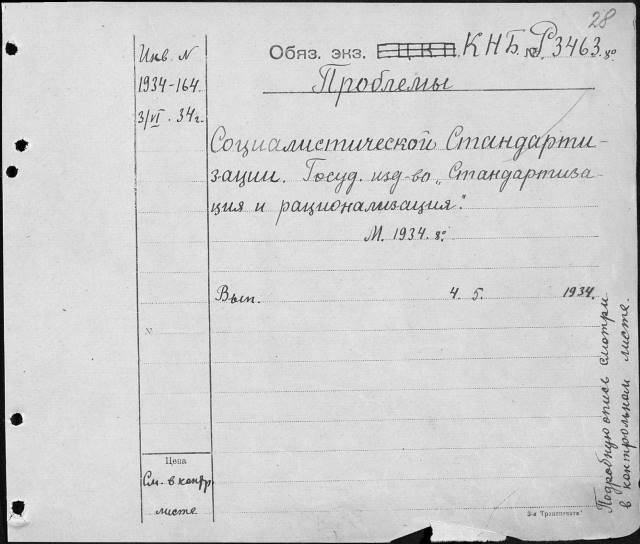 28
Инв. N
1934-164.
3/VI. 34г.
Обяз. экз. Е.Ц.К.П. КНБ. № Р3463.8°
Проблемы
Социалистической Стандарти-
зации. Госуд. изд-во „Стандартиза-
ция и рационализация".
М. 1934. 8°.
Вып. 4. 5. 1934.
N
Цена
См. в контр.
листе
Подробную опись смотри
в контрольном листе.